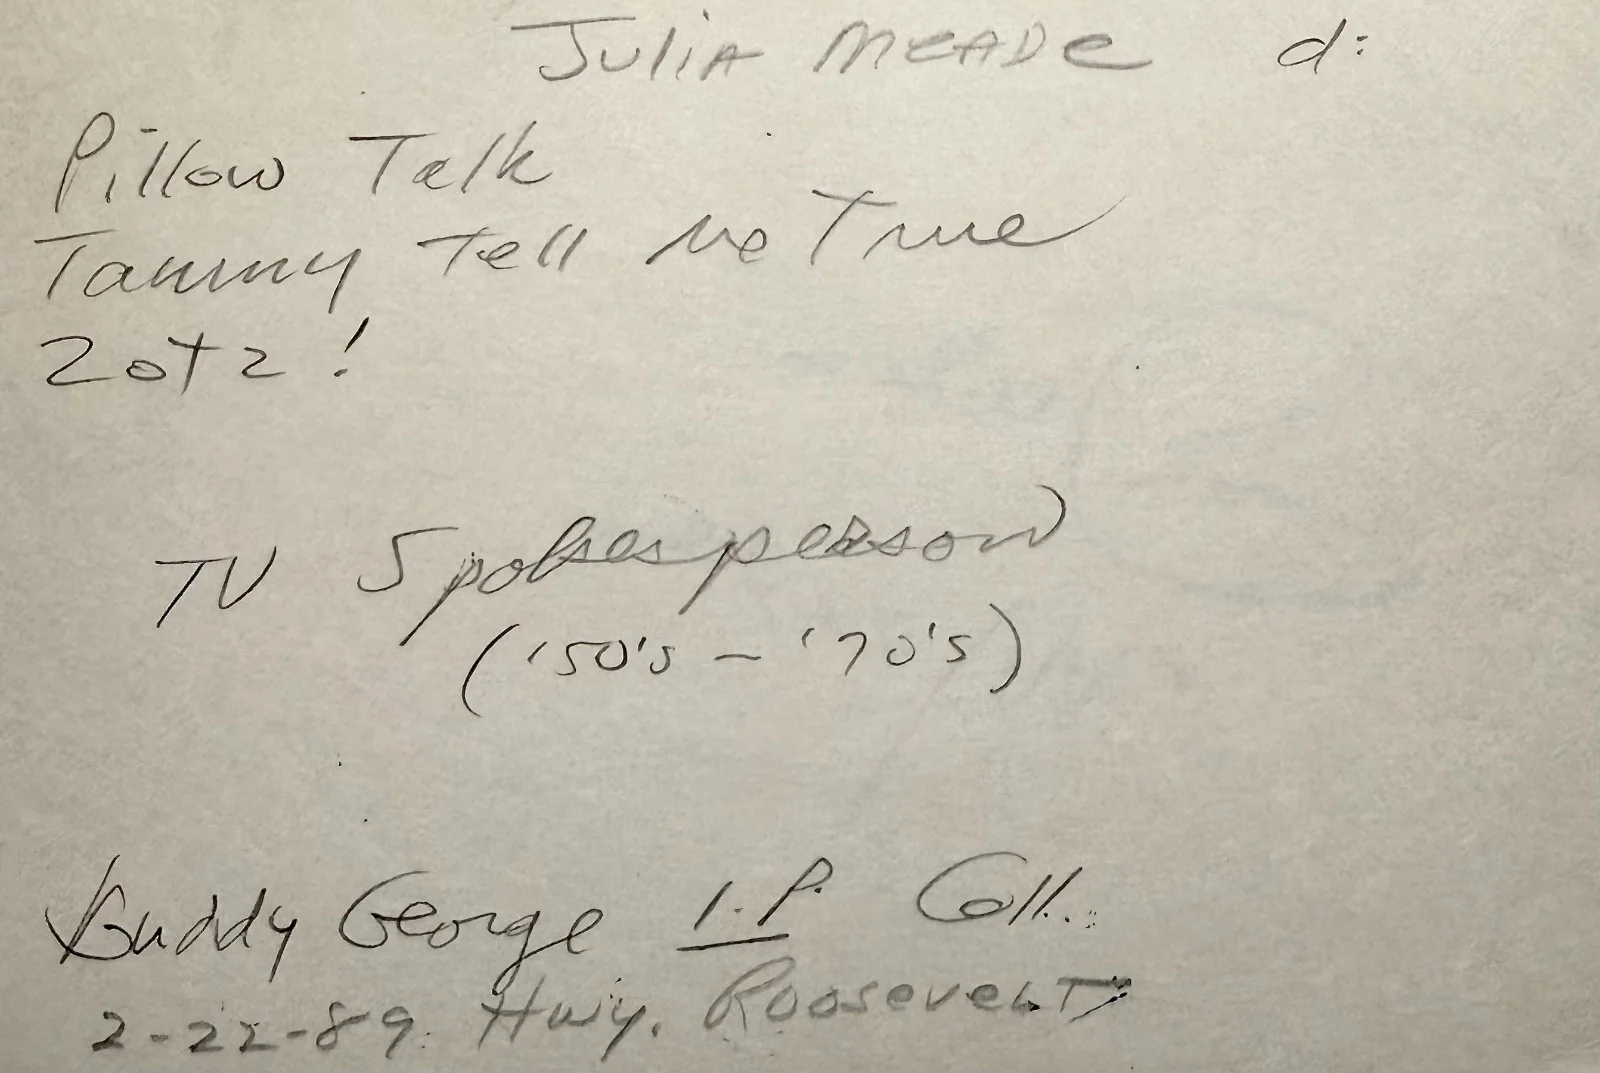 Julia MEADe d:
Pillow Talk
Tammy Tell Me True
Zotz!
TV Spokesperson
('50's - '70's)
Buddy George I.P. Coll.
2-22-89 Hwy. RooseveLT